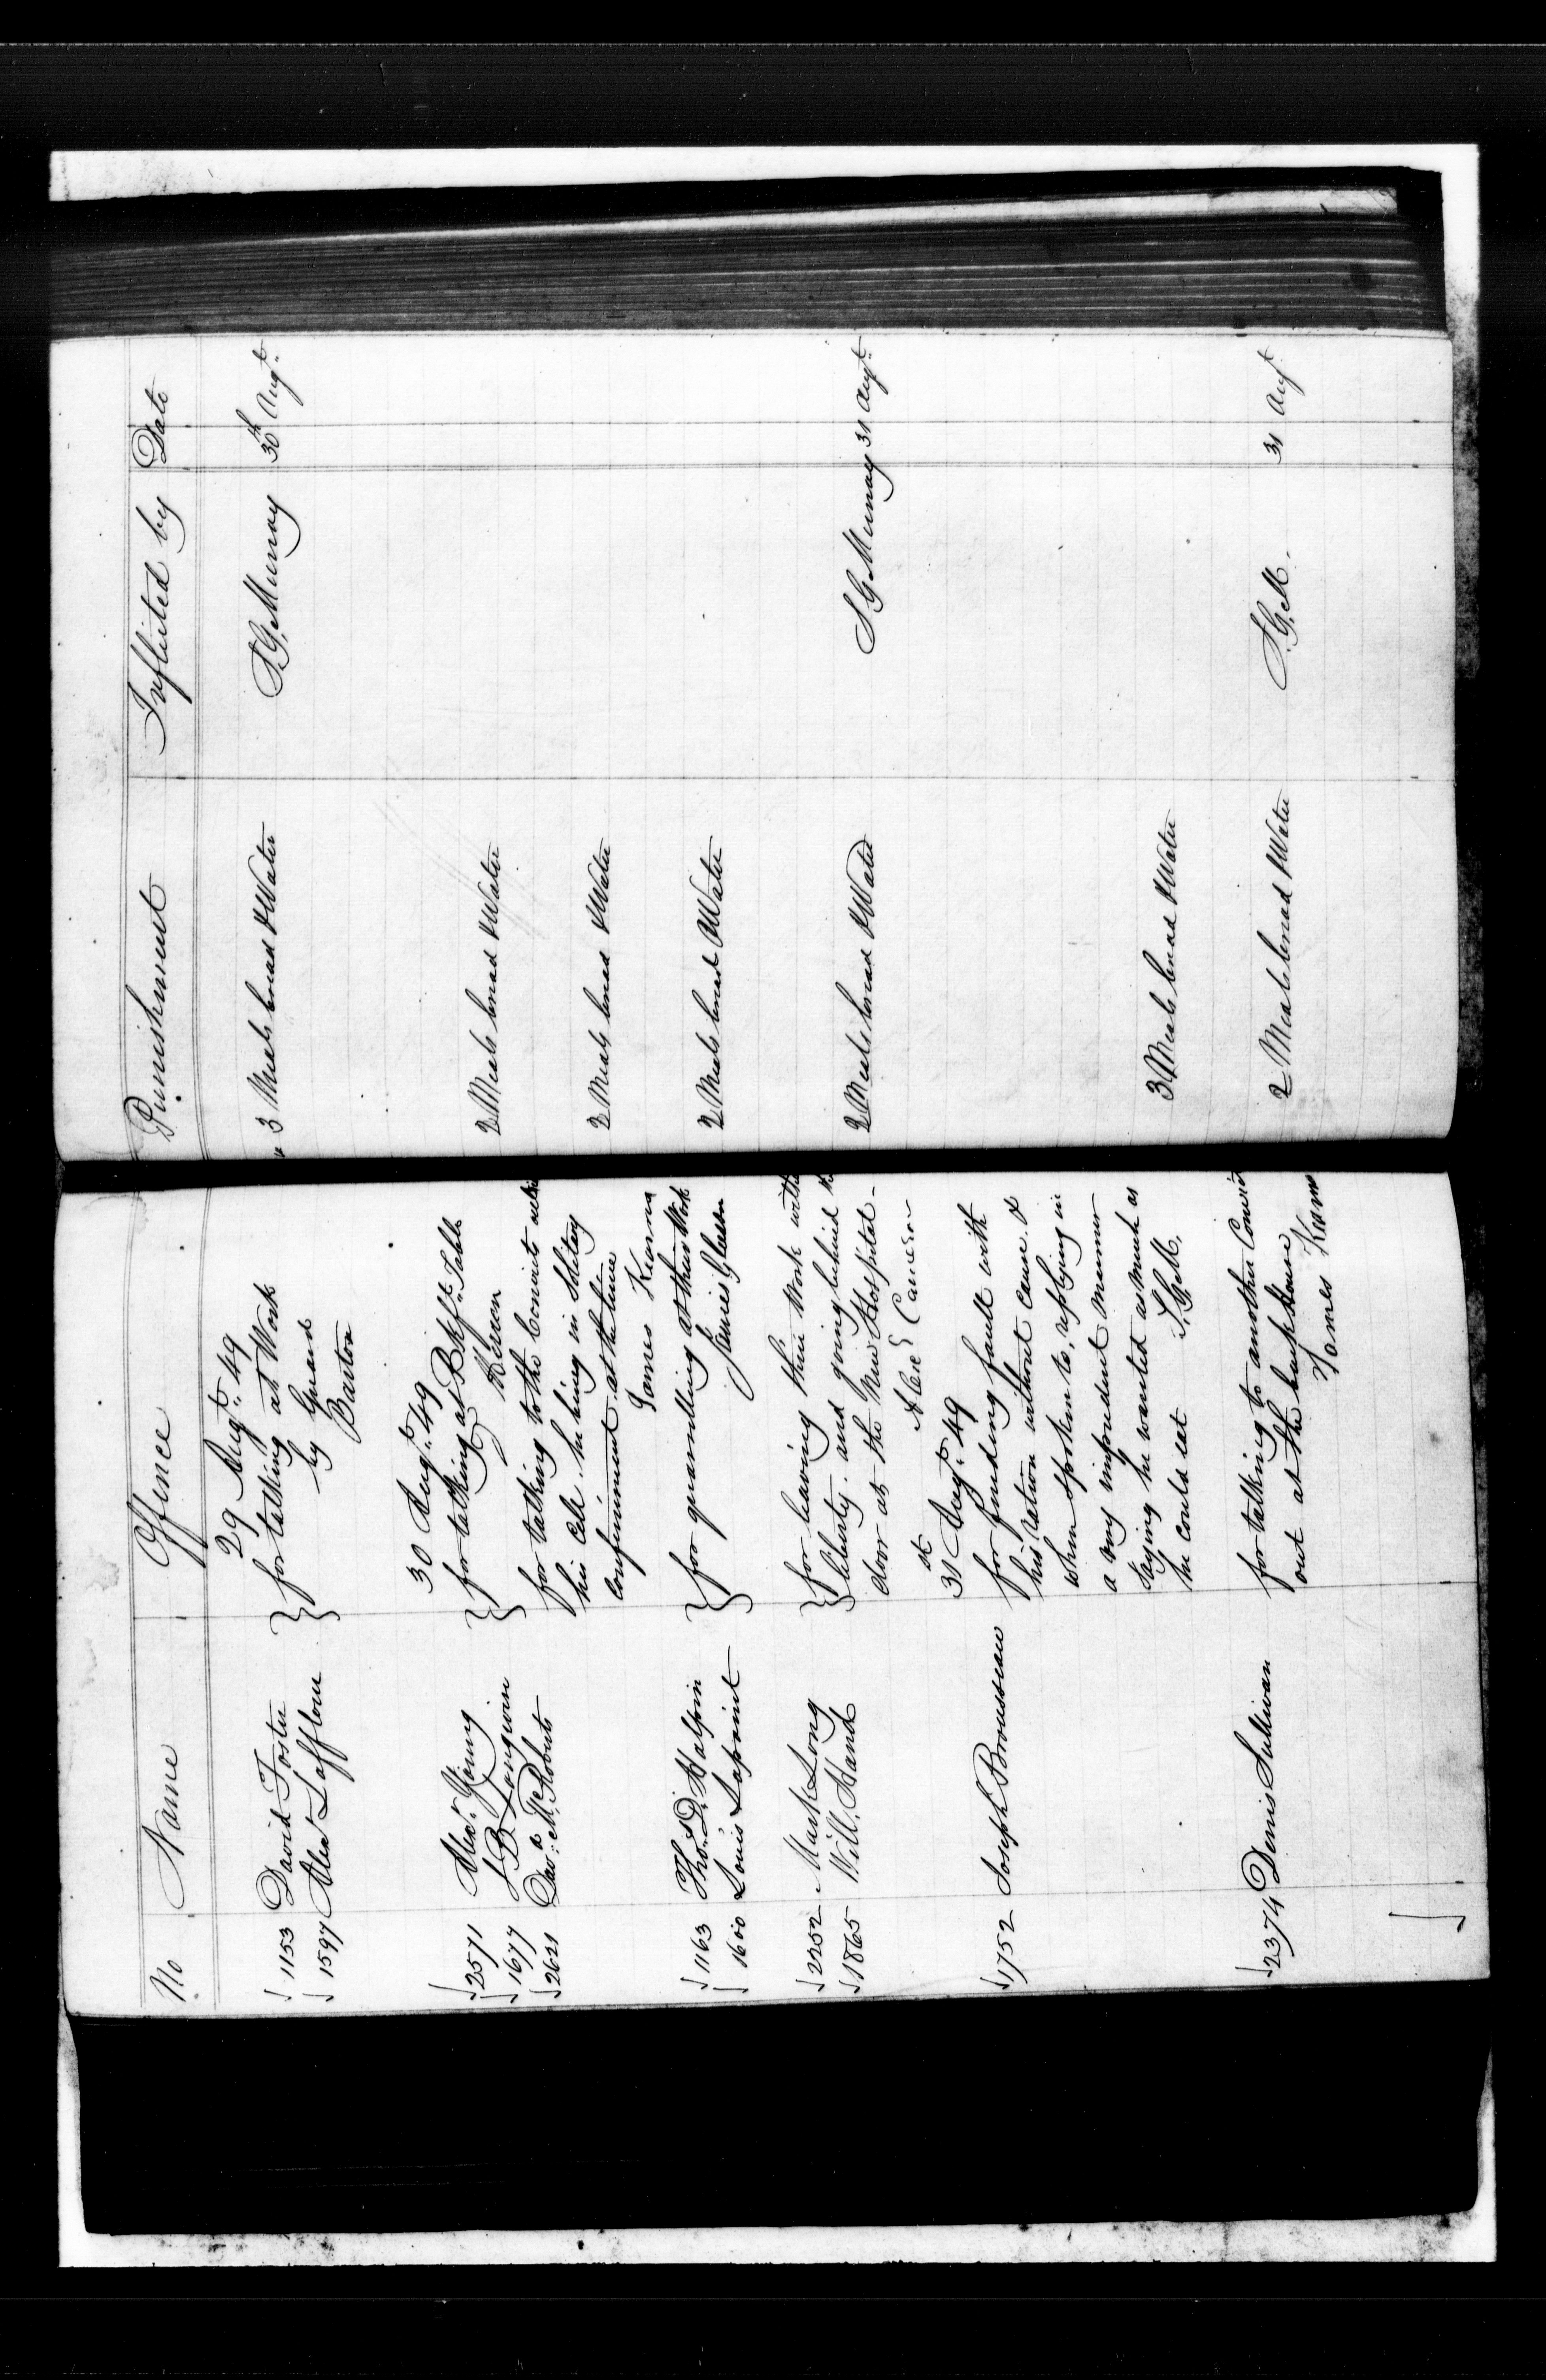 No Name Offence Punishment Inflicted by Date
29 Augt. 49
1153 David Foster } for talking at Work 3 Meals bread & Water S.G. Murray 30th Augt.
1597 Alexr Lafflour } by Guard
Barton
30 Augt. 49
2571 Alexr. Young } for talking at Bekft. Table 2 Meals bread & Water
1677 J B Langivin }
2621 Davd. McRoberts for talking to the Convicts
his Cell. he being in Solitary 3 Meals bread & Water
confinement at the time
James Kearns
1163 Thos. D. Halpin } for quarrelling at their Work 2 Meals bread & Water
1600 Louis Lapoint } James Gleeson
2252 Mark Long } for leaving their Work with
1865 Will. Hand } liberty. and going behind the 2 Meals bread & Water S G Murray 31 Augt.
door at the New Hospital -
Alexr Cameron
31st Augt. 49
1752 Joseph Brousseau for finding fault with
his ration without cause. &
when spoken to, replying in
a very impudent manner
saying he wanted as much as 3 Meals bread & Water
he could eat S.G.M.
2374 Denis Sullivan for talking to another Convict 2 Meals bread & Water S.G.M. 31 Augt
out at the
James Kearns